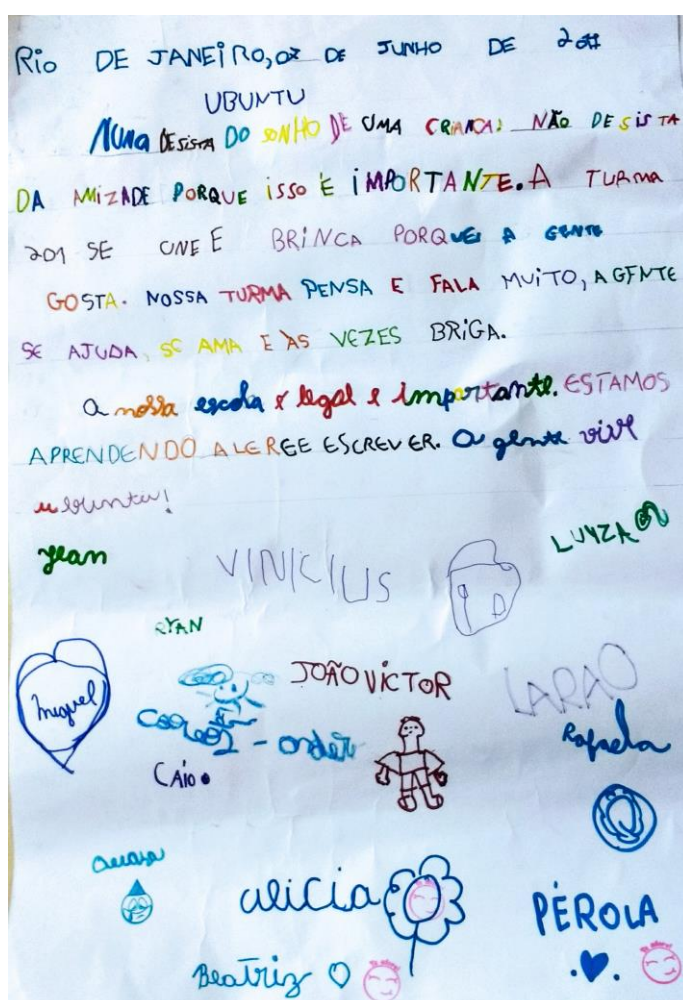 RIO DE JANEIRO, 07 DE JUNHO DE
UBUNTU
NUNA DESISTA DO SONHO DE UMA CRIANÇA: NÃO DESISTA
DA AMIZADE PORQUE ISSO É IMPORTANTE. A TURMA
201 SE UNE E BRINCA PORQUE A GENTE
GOSTA. NOSSA TURMA PENSA E FALA MUITO, A GENTE
SE AJUDA, SE AMA E ÀS VEZES BRIGA.
a nossa escola é legal e importante. ESTAMOS
APRENDENDO A LER E ESCREVER. A gente vive
ubuntu!
Jean
VINICIUS
LUYZA
RYAN
Miguel
JOÃO VICTOR
Rafaela
CAIO
alicia
PÉROLA
Beatriz